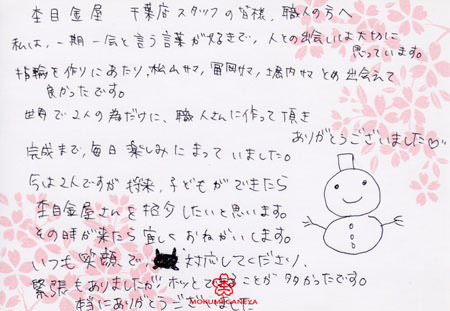 杢目金屋 千葉店スタッフの皆様、職人の方へ
私は、一期一会と言う言葉が好きで、人との出会いは大切に
思っています。
指輪を作りにあたり、松山サマ、冨岡サマ、堀内サマとの出会えて
良かったです。
世界で2人の為だけに、職人さんに作って頂き
ありがとうございました♡
完成まで、毎日楽しみにまっていました。
今は2人ですが将来、子どもができたら
杢目金屋さんを紹介したいと思います。
その時が来たら宜しくおねがいします。
いつも笑顔で 対応してくださり、
緊張もありましたが、ホッとできることが多かったです。
本当にありがとうございました
MOKUMEGANEYA